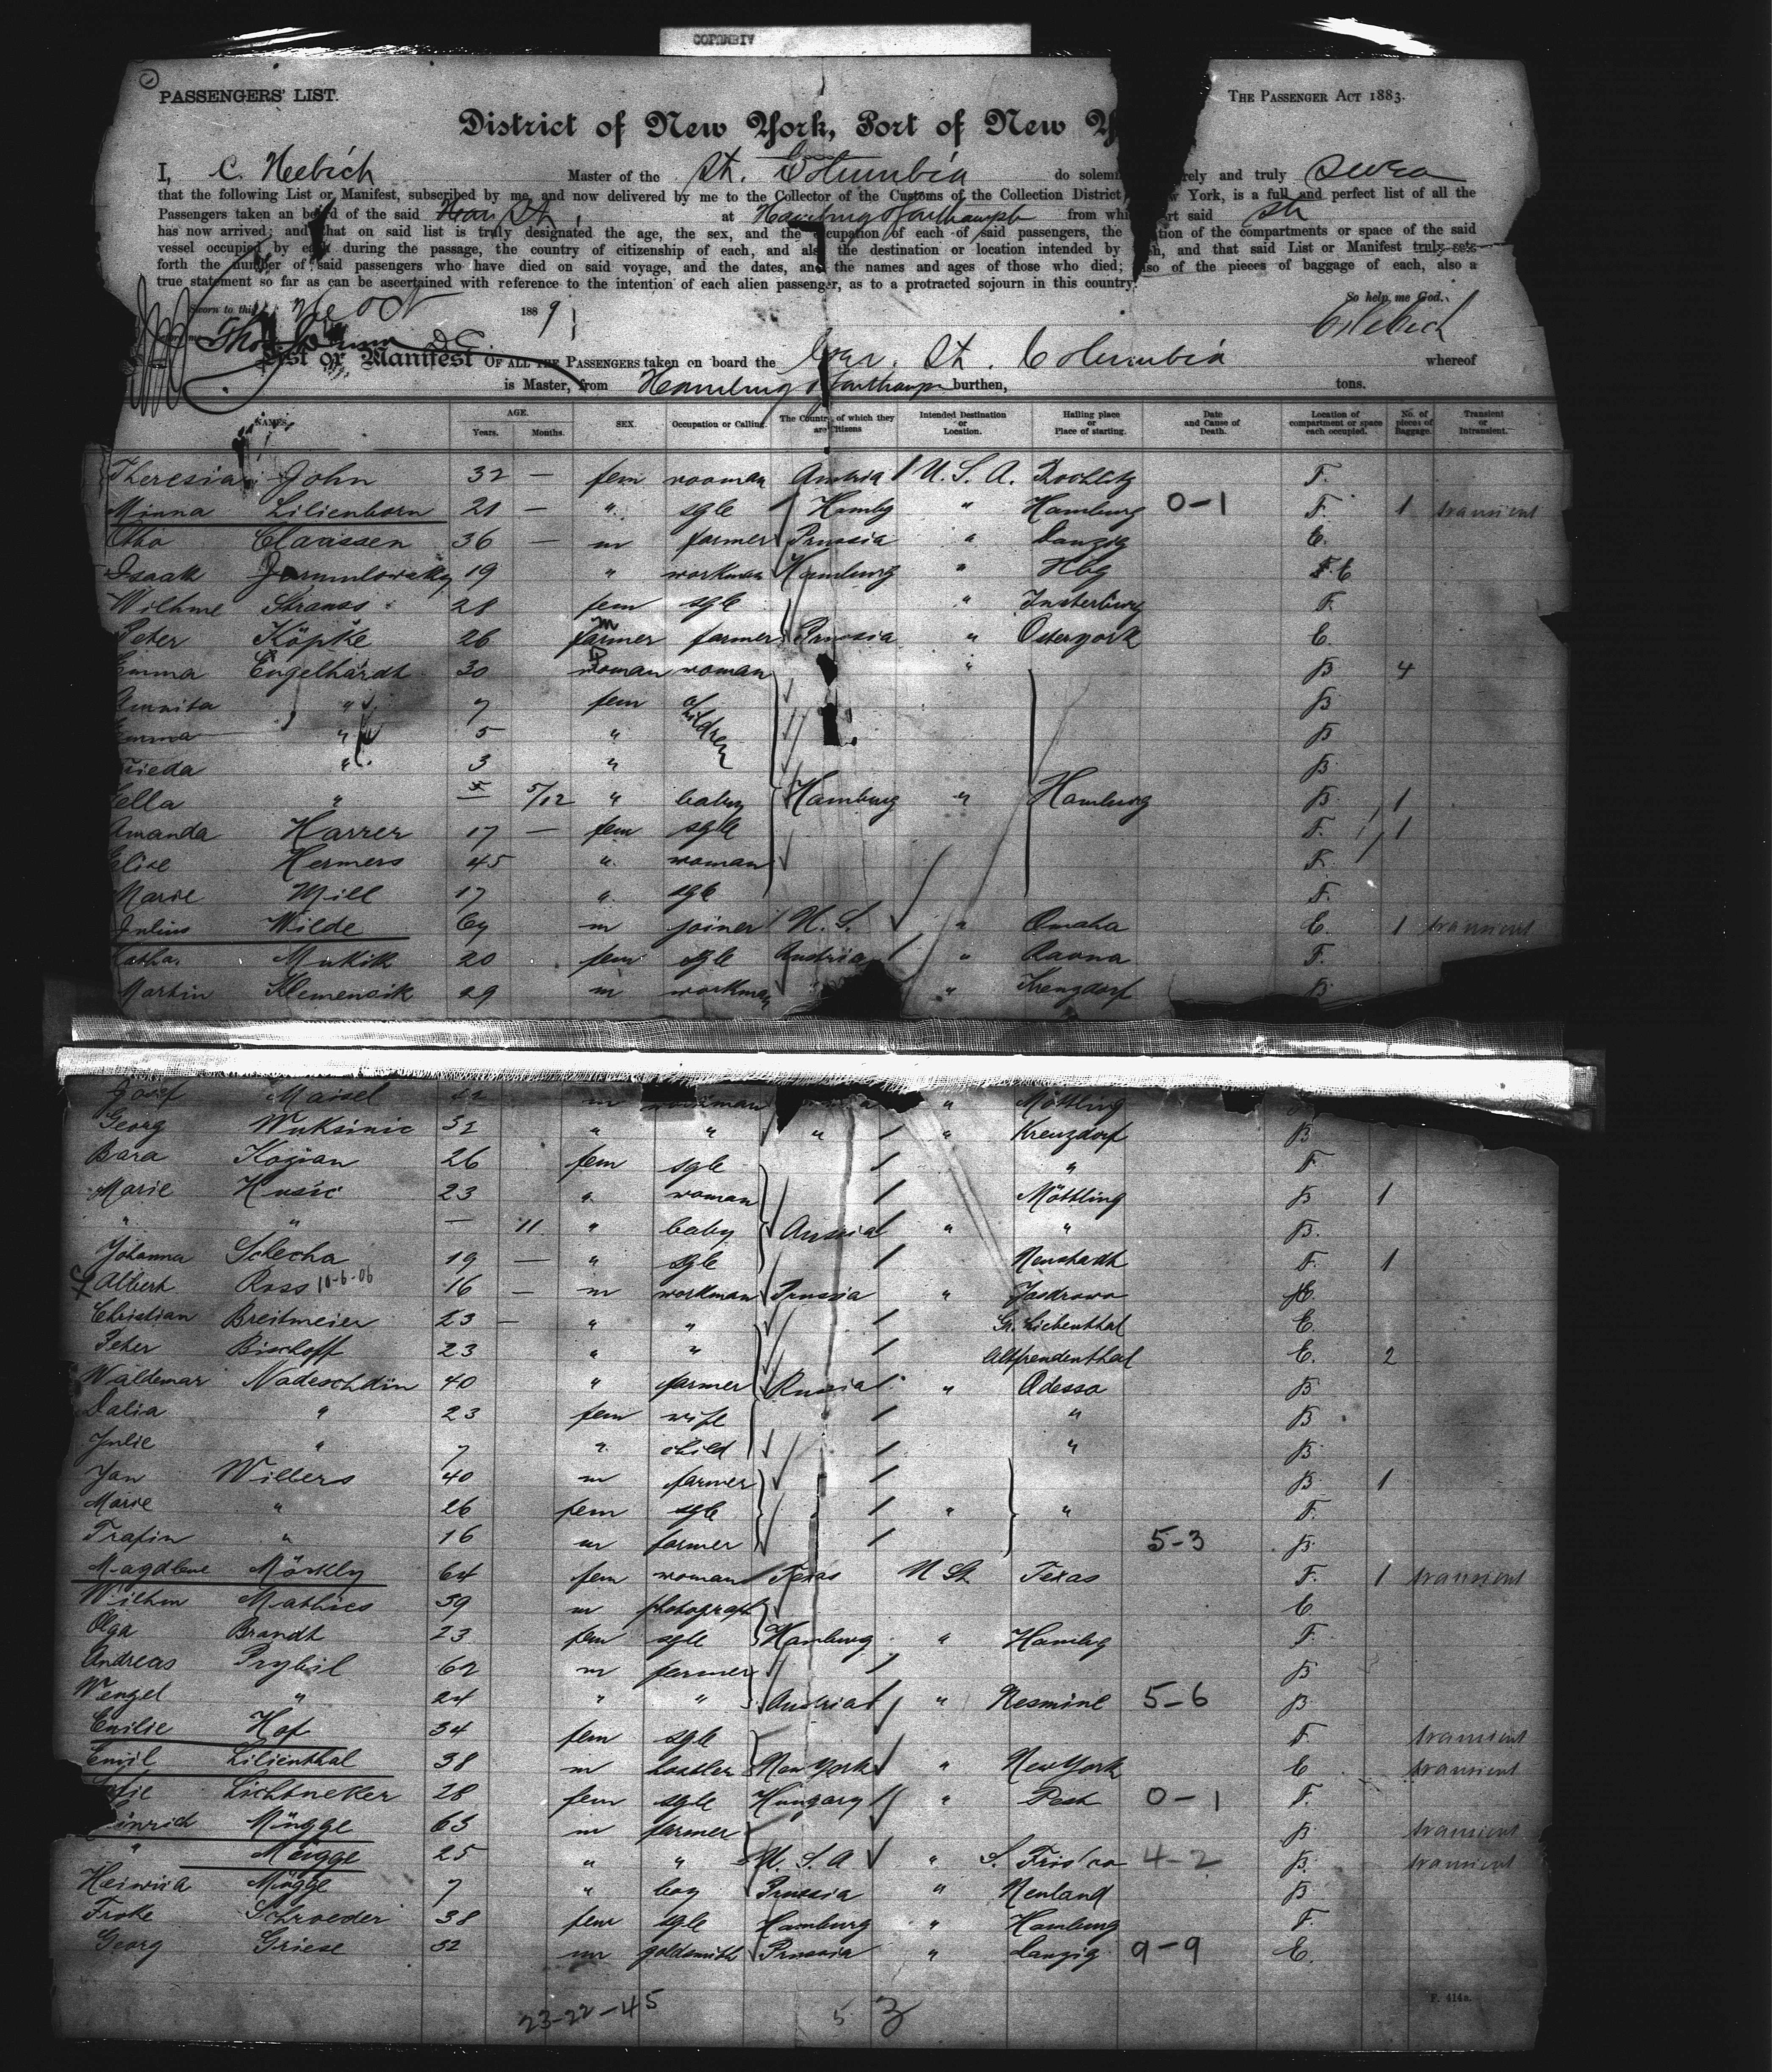 COLUMBIA
PASSENGERS' LIST.
THE PASSENGER ACT 1883.
District of New York, Port of New Y
I, C. Hebich Master of the St. Columbia do solemn rely and truly swea
that the following List or Manifest, subscribed by me, and now delivered by me to the Collector of the Customs of the Collection District w York, is a full and perfect list of all the
Passengers taken on board of the said at Hamburg Southampt from whi rt said
has now arrived; and that on said list is truly designated the age, the sex, and the occupation of each of said passengers, the tion of the compartments or space of the said
vessel occupied by each during the passage, the country of citizenship of each, and also the destination or location intended by ch, and that said List or Manifest truly sets
forth the number of said passengers who have died on said voyage, and the dates, and the names and ages of those who died; also of the pieces of baggage of each, also a
true statement so far as can be ascertained with reference to the intention of each alien passenger, as to a protracted sojourn in this country.
Sworn to this Oct 1889
So help me God.
CHebich
List or Manifest OF ALL THE PASSENGERS taken on board the Ger. St. Columbia whereof
is Master, from Hamburg Southampt burthen, tons.
NAMES. AGE. Years. Months. SEX. Occupation or Calling. The Country of which they are Citizens Intended Destination or Location. Hailing place or Place of starting. Date and Cause of Death. Location of compartment or space each occupied. No. of pieces of Baggage. Transient or Intransient.
Theresia John 32 — fem wooman Austria U. S. A. F.
Minna Lilienborn 21 — " sgle Hambg " Hamburg 0-1 F. 1 transient
Otto Claassen 36 — m farmer Prussia " Danzig E.
Isaak 19 " workman Hamburg " Hbg F. E
Wilhme Strauss 28 fem sgle " Insterburg F.
Peter Köpke 26 m farmer farmer Prussia " Ostervork E.
Emma Engelhardt 30 woman woman " B 4
Annita " 7 fem children B
Emma " 5 " B
Frieda " 3 " B
Cella " 5/12 " baby Hamburg " Hamburg B 1
Amanda Harrer 17 — fem sgle F. 1
Elise Hermers 45 " woman F.
Marie Mill 17 " sgle F.
Julius Wilde 69 m joiner U. S. " Omaha E. 1 transient
Katha. Mukik 20 fem sgle Austria " Ravna F.
Martin Klemencik 29 m workman " " Krengdorf B
Josef Maisel 42 m workman " Möttling
Georg Wuksinic 32 " " " " Kreuzdorf B
Bara Kozian 26 fem sgle " F
Marie Husic 23 " woman Möttling B 1
" " — 11 " baby Austria " " B.
Johanna Scecha 19 — " sgle Neustadt F. 1
Albert Ross 10-6-06 16 — m workman Prussia " Jasdrowo E.
Christian Breitmeier 23 — " " Gr. Liebenthal E.
Peter Bischoff 23 " " Altfreudenthal E. 2
Waldemar Nadeschdin 40 " farmer Russia " Odessa B
Dalia " 23 fem wife " B
Julie " 7 " child " B
Jan Willers 40 m farmer B 1
Marie " 26 fem sgle " " F.
Trafin " 16 m farmer 5-3 B.
Magdlene Mörkly 64 fem woman Texas U St. Texas F. 1 transient
Wilhm Mathies 39 m photograph E.
Olga Brandt 23 fem sgle Hamburg " Hambg F.
Andreas Prybil 62 m farmer B
Wenzel " 24 " " Austria " Nesmine 5-6 B
Emilie Hof 34 fem sgle F. transient
Emil Lilienthal 38 m hostler New York " New York E transient
Sofie Lichtneker 28 fem sgle Hungary " Pest 0-1 F.
Heinrich Mügge 63 m farmer B transient
" Mügge 25 " " U. S. A " S. Frisco 4-2 B. transient
Mügge 7 " boy Prussia " Neuland B
Frske Schroeder 38 fem sgle Hamburg " Hamburg F.
Georg Griese 32 m goldsmith Prussia " Danzig 9-9 E.
23-22-45 5
F. 414a.